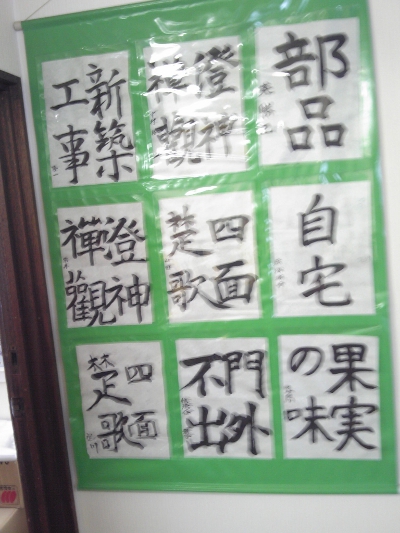 部品
澄神
禪觀
新築
工事
自宅
四面
楚歌
澄神
禪觀
果実
の味
門外
不出
四面
楚歌